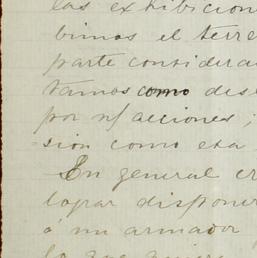 las exhibicion
bimos el terre
parte considera
tamos como des
por n/ acciones;
sion como esa
En general cr
lograr disponer
á un armador
lo que quiera